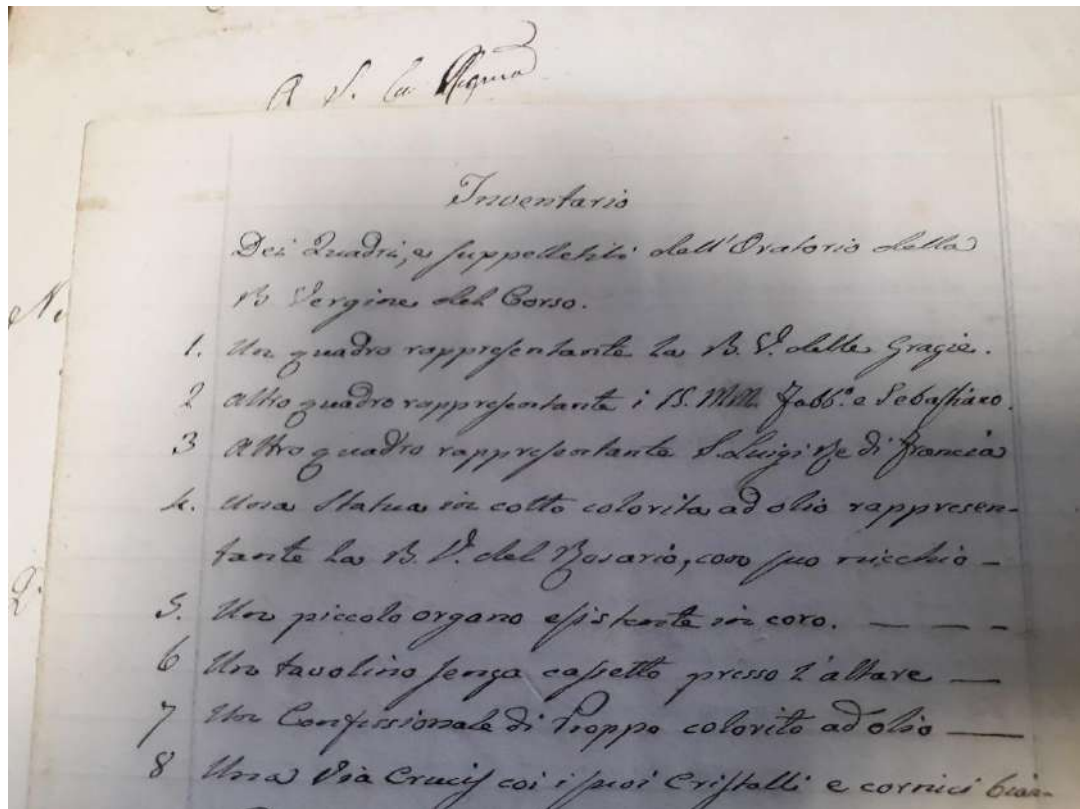 A S. La
Inventario
Dei Quadri, e suppelletili dell'Oratorio della
B Vergine del Corso.
1. Un quadro rappresentante la B. V. delle Grazie.
2 Altro quadro rappresentante i S. MM. Fabb.º e Sebastiano.
3 Altro quadro rappresentante S. Luigi Re di Francia
4. Una Statua in cotto colorita ad olio rappresen-
tante la B. V. del Rosario, con suo nicchio –
5. Un piccolo organo esistente in coro. — — —
6 Un tavolino senza cassetto presso l'altare —
7 Un Confessionale di Pioppo colorito ad olio —
8 Una Via Crucis coi i suoi Cristalli e cornici bian-